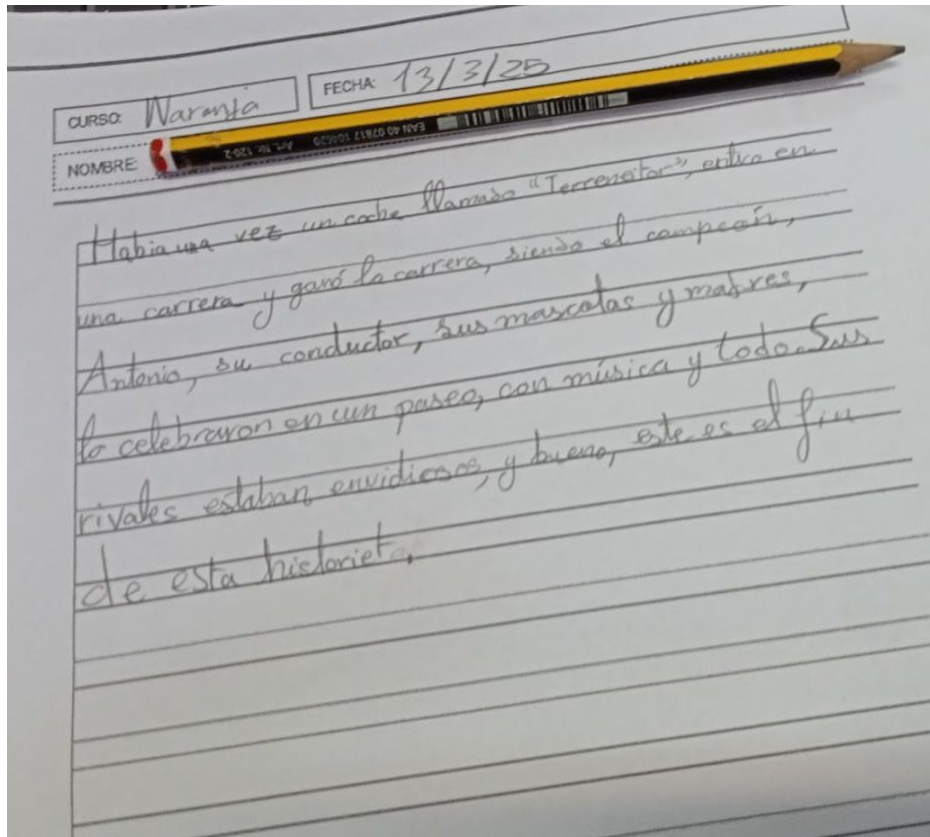 CURSO: Naranja
FECHA: 13/3/25
NOMBRE:
EAN 40 07817 104620 Art. Nr. 120-2
Habia una vez un coche llamado "Terreneitor", entro en
una carrera y ganó la carrera, siendo el campeón,
Antonio, su conductor, sus mascotas y madres,
lo celebraron en un paseo, con música y todo. Sus
rivales estaban envidiosos, y bueno, este es el fin
de esta historieta.